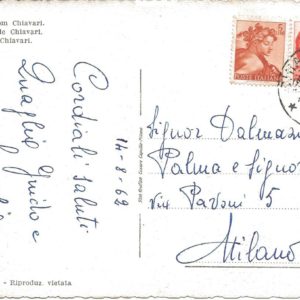 om Chiavari.
de Chiavari.
Chiavari.
14-8-62
Cordiali saluti
Quaglia Guido e
POSTE ITALIANE
Signor Dalmasso
Palma e Signor
Via Pavoni 5
Milano
- Riproduz. vietata